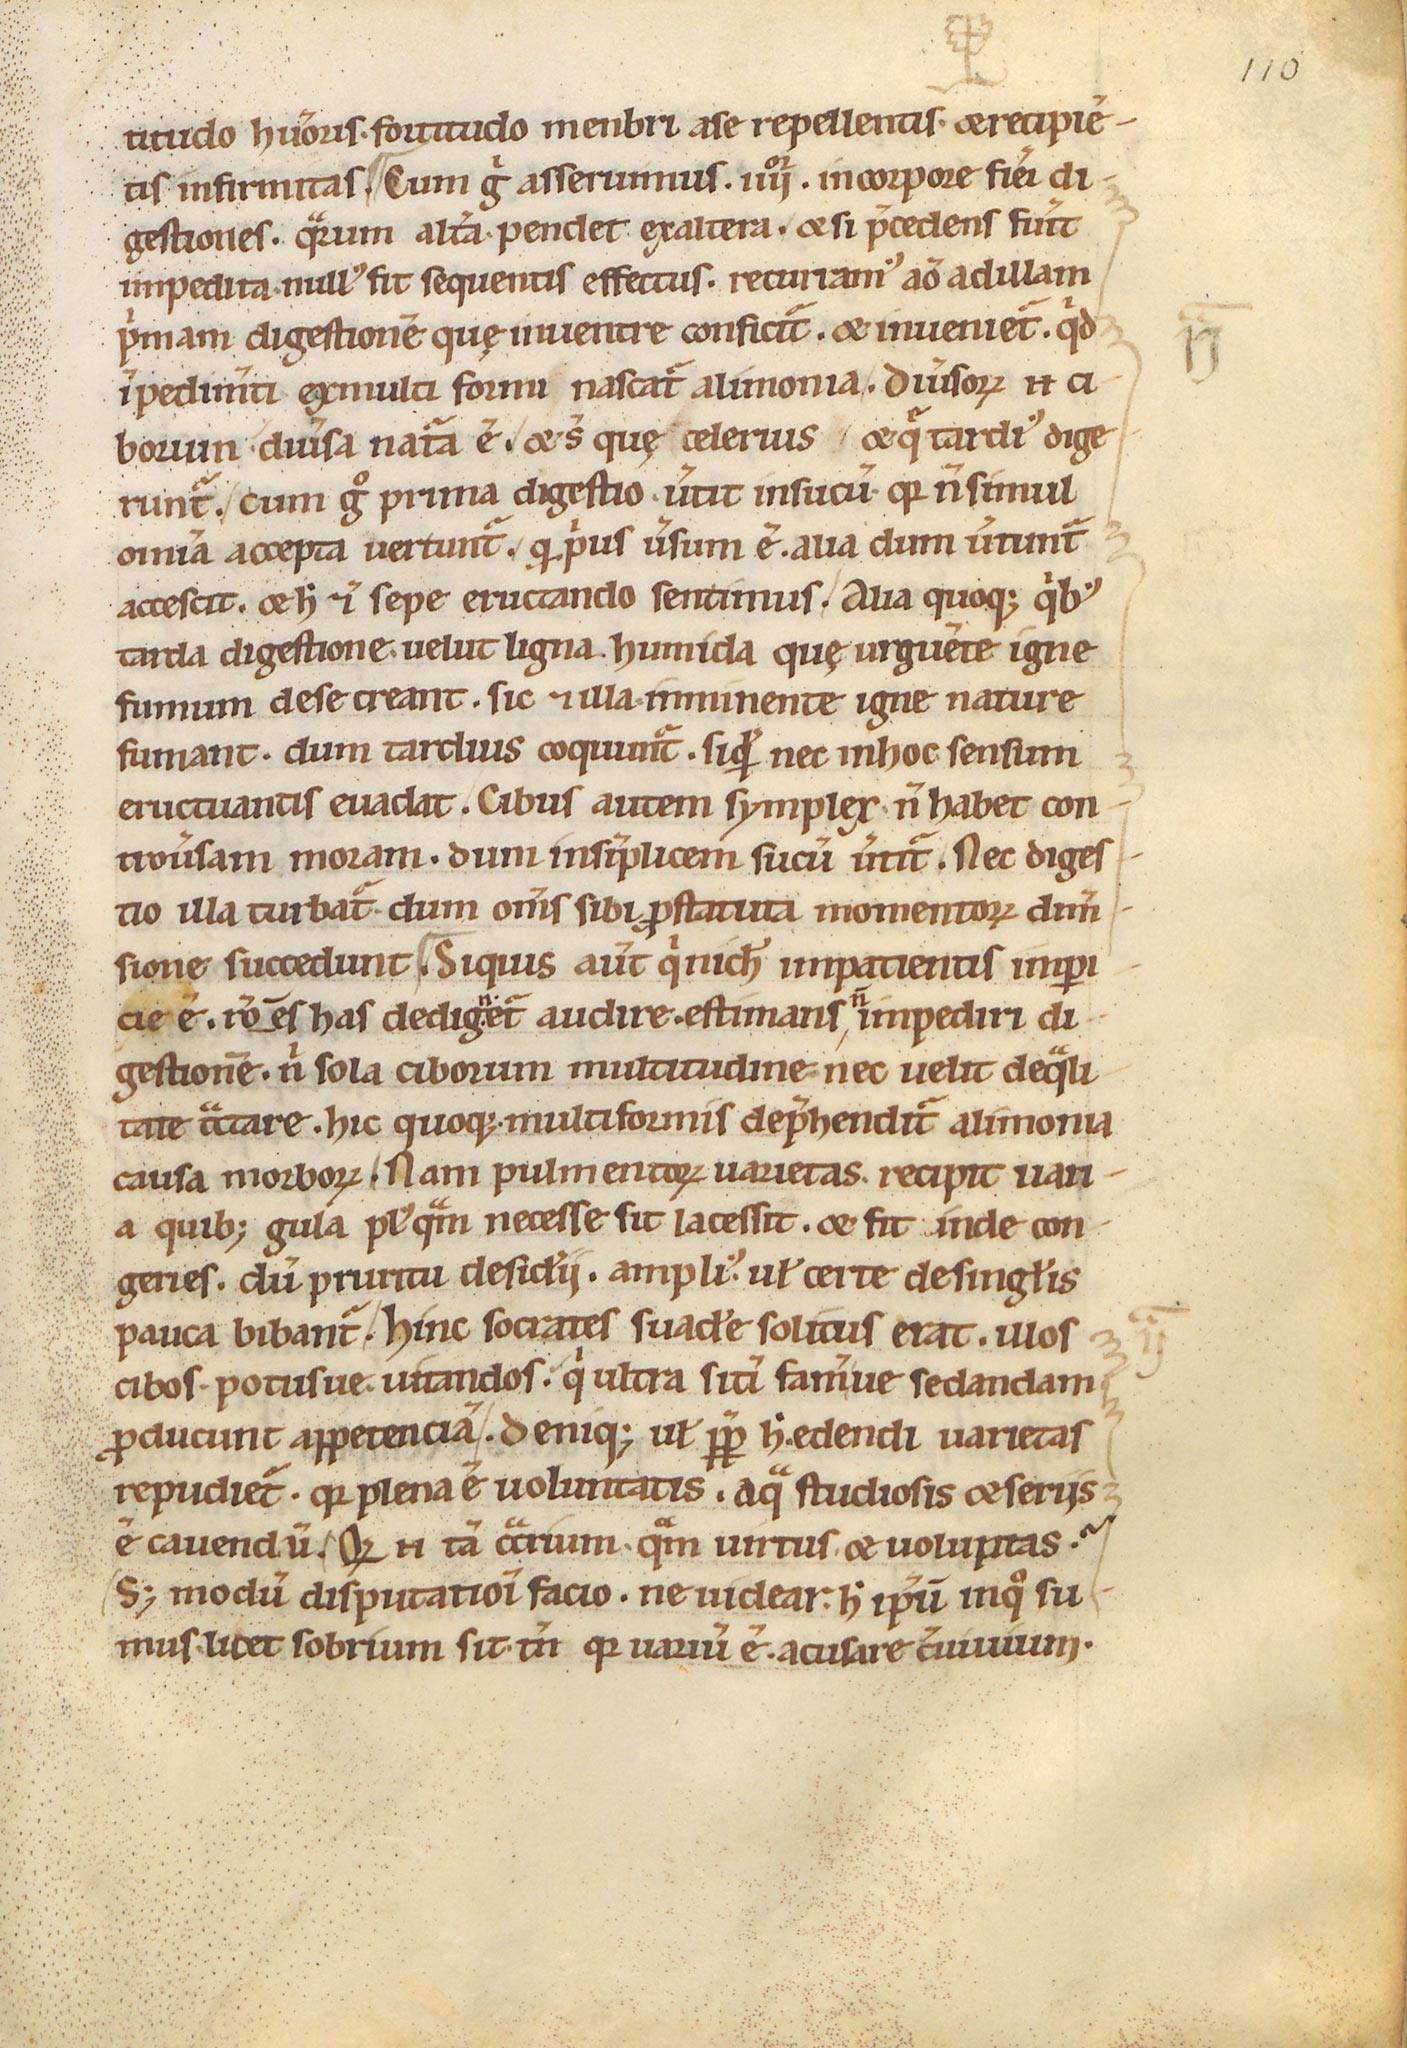 110
titudo hum̄oris. fortitudo menbri a se repellentis. & recipiē-
tis infirmitas. Cum gͥ asserunmus. iiiiͦʳ. in corpore fiēi di-
gestiones. qͣrum alt̄a pendet ex altera. & si p̄cedens fuīt
impedita. null᾽ fit sequentis effectus. recuriam᾽ aō ad illam
pͥmam digestionē quę in uentre conficit᷑. & inueniet᷑. qͥd
īpedim̄ti ex multi formi nascat᷑ alimonia. Diūsoꝝ n ci
borum diūsa nat᷑a ē. & s̄ quę celerius & qͣ tardi᾽ dige
runt᷑. Cum gͦ prima digestio ūtit in sucū. qꝛ n̄ simul
omīa accepta vertunt᷑. qꝫ pͥus ūsum ē. alia dum ūtunt᷑
accescit. & h̄ ⁊ī sepe eructando sentimus. Alia quoqꝫ qͥb᾽
tarda digestione. uelut ligna humida quę urguēte igne
fumum de se creant. sic ⁊ illa imminente igne nature
fumant. dum tardius coquunt᷑. siqͥdē nec in hoc sensum
eructuantis euadat. Cibus autem symplex n̄ habet con-
troūsam moram. dum in sīplicem sucū ūtit᷑. Nec diges-
tio illa turbat᷑. dum om̄s sibi ꝓ statuta momentoꝝ dim̄-
sione succedunt. Siquis aūt qͥ nich̄ impatientis imꝑi-
cie ē. rōēs has dedignet᷑ audire. estimans n̄ impediri di-
gestionē. nͥ sola ciborum multitudine. nec uelit de qͣli
tate tͣctare. hic quoqꝫ. multiformis dep̄hendit᷑ alimonia
causa morboꝝ. Nam pulmentoꝝ uarietas. recipit uari-
a quibꝫ gula pl᾽ qͣm necesse sit lacessit. & fit inde con-
geries. dū pruritu desid̄ii. ampli᾽. uł certe de singłis
pauca bibant᷑. Hinc socrates suad̄e solitus erat. illos
cibos. potusue. uitandos. qͥ ultra sitī famēue sedandam
ꝓducunt appetenciā. Deniqꝫ uł ꝓpͥ h̄ edendi uarietas
repudiet᷑. qꝛ plena ē uoluntatis. Aqͣ studiosis & seriis
ē cauendū. Qꝛ n tā cͣrium. qͣm uirtus. & uoluptas.
Sꝫ modū disputatioī facio. ne uidear. h̄ ip̄ū in qͦ su
mus. licet sobrium sit. tn̄ qꝛ uariū ē. acusare c̄uiuium.